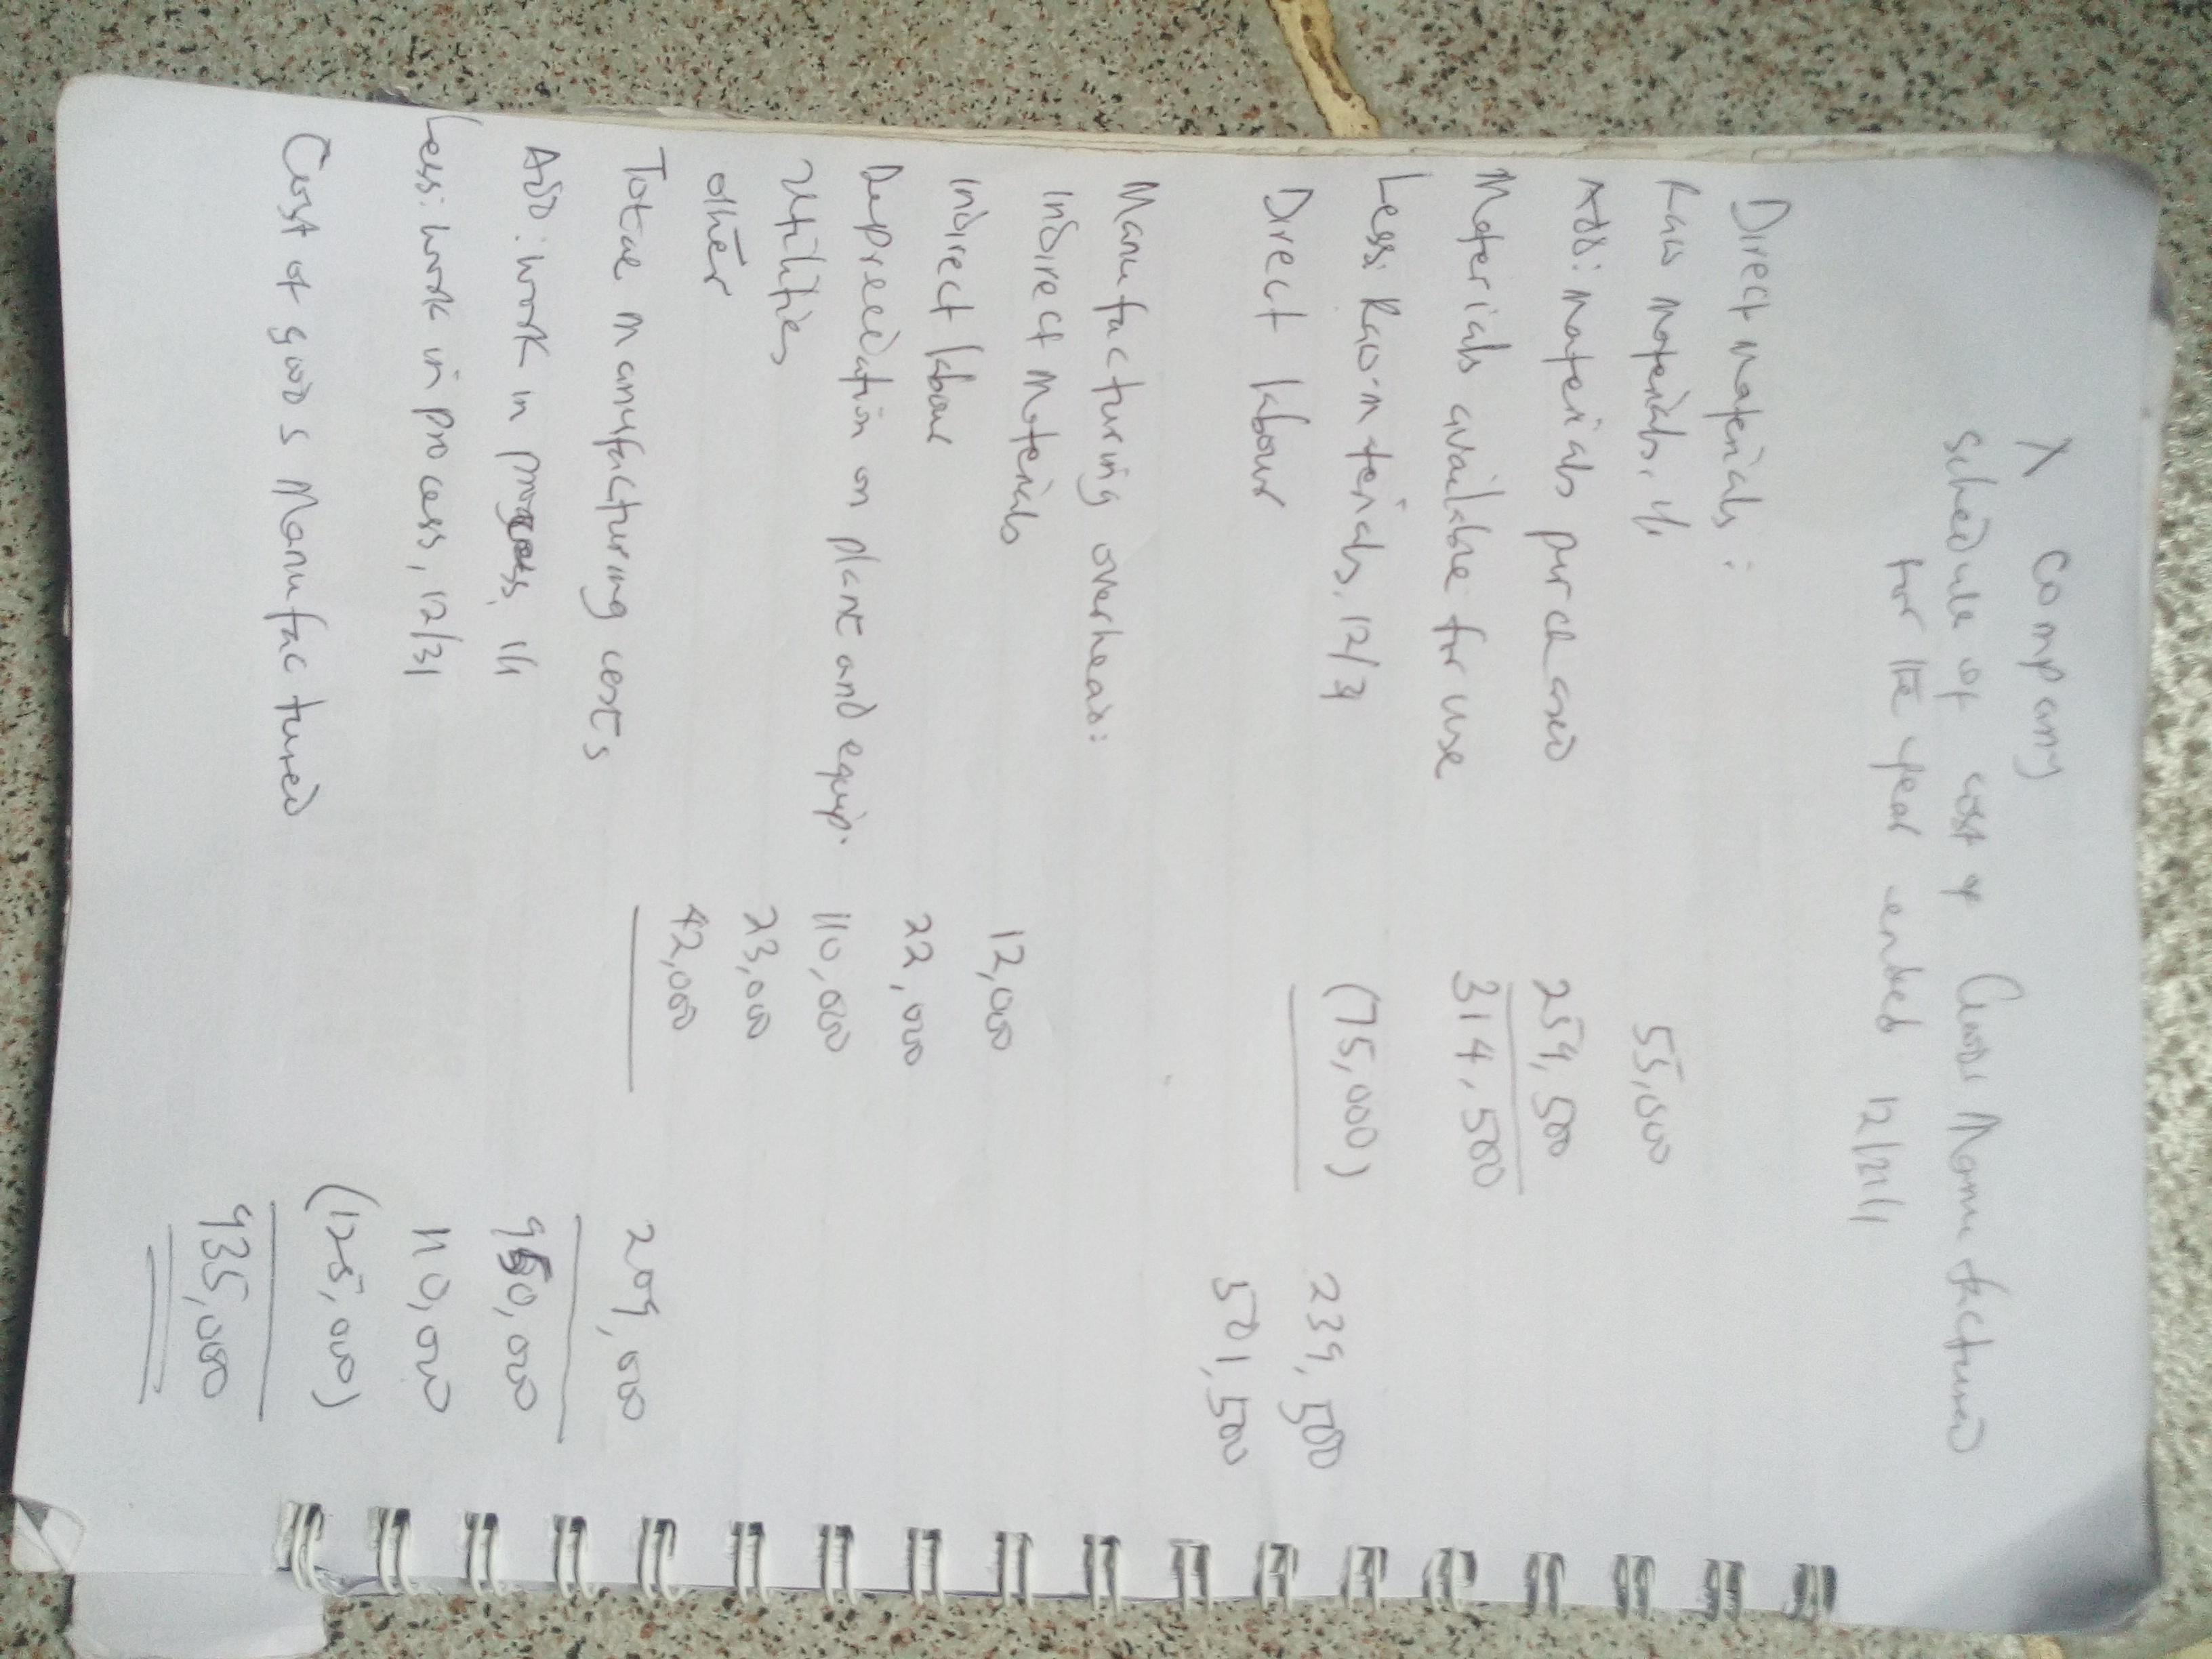 X Company
Schedule of cost of Goods Manufactured
for the year ended 12/21/1
Direct materials:
Raw materials, 1/1 55,000
Add: materials purchased 259,500
Materials available for use 314,500
Less: Raw-materials, 12/31 (75,000) 239,500
Direct labour 501,500
Manufacturing overhead:
Indirect Materials 12,000
Indirect labour 22,000
Depreciation on plant and equip. 110,000
Utilities 23,000
other 42,000 209,000
Total manufacturing costs 950,000
Add: work in process, 1/1 110,000
Less: work in process, 12/31 (125,000)
Cost of goods Manufactured 935,000